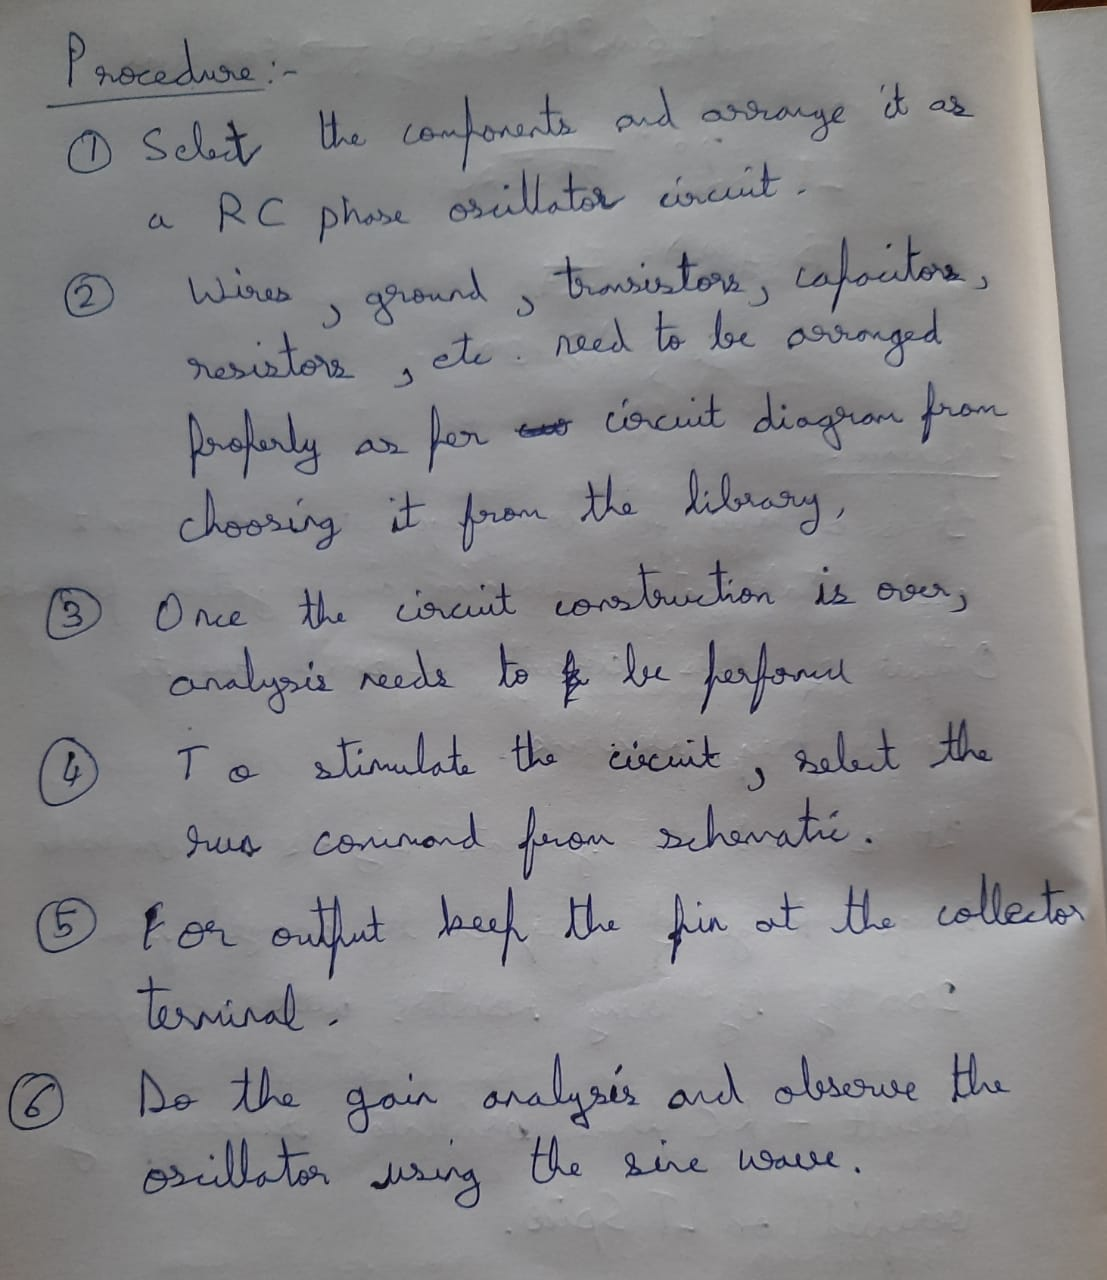 Procedure:-
① Select the components and arrange it as
a RC phase oscillator circuit.
② Wires, ground, transistors, capacitors,
resistors, etc. need to be arranged
properly as per circuit diagram from
choosing it from the library,
③ Once the circuit construction is over,
analysis needs to be performed
④ To stimulate the circuit, select the
run command from schematic.
⑤ For output keep the pin at the collector
terminal.
⑥ Do the gain analysis and observe the
oscillator using the sine wave.